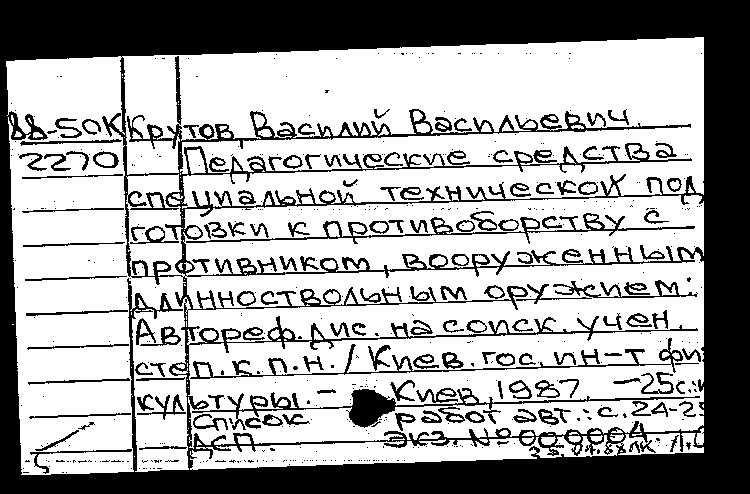 88-50К Крутов, Василий Васильевич.
2270 Педагогические средства
специальной технической под
готовки к противоборству с
противником, вооруженным
длинноствольным оружием:
Автореф. дис. на соиск. учен.
степ. к.п.н. / Киев. гос. ин-т физ
культуры. - Киев, 1987. - 25с.:
Список работ авт.: с. 24-25
ДСП. Экз. № 000004